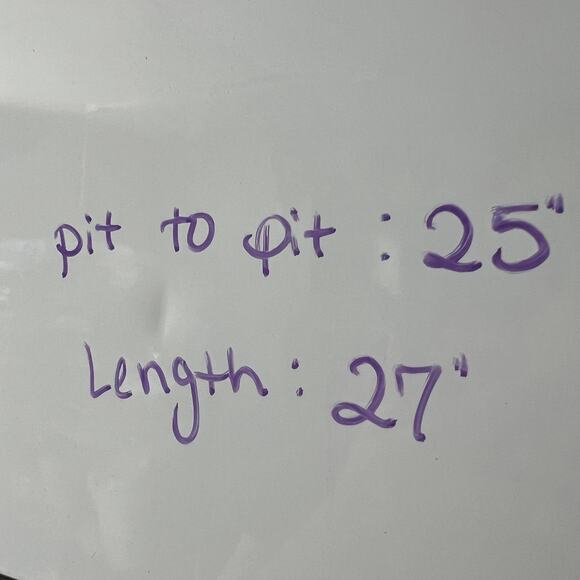 pit to pit : 25"
Length : 27"